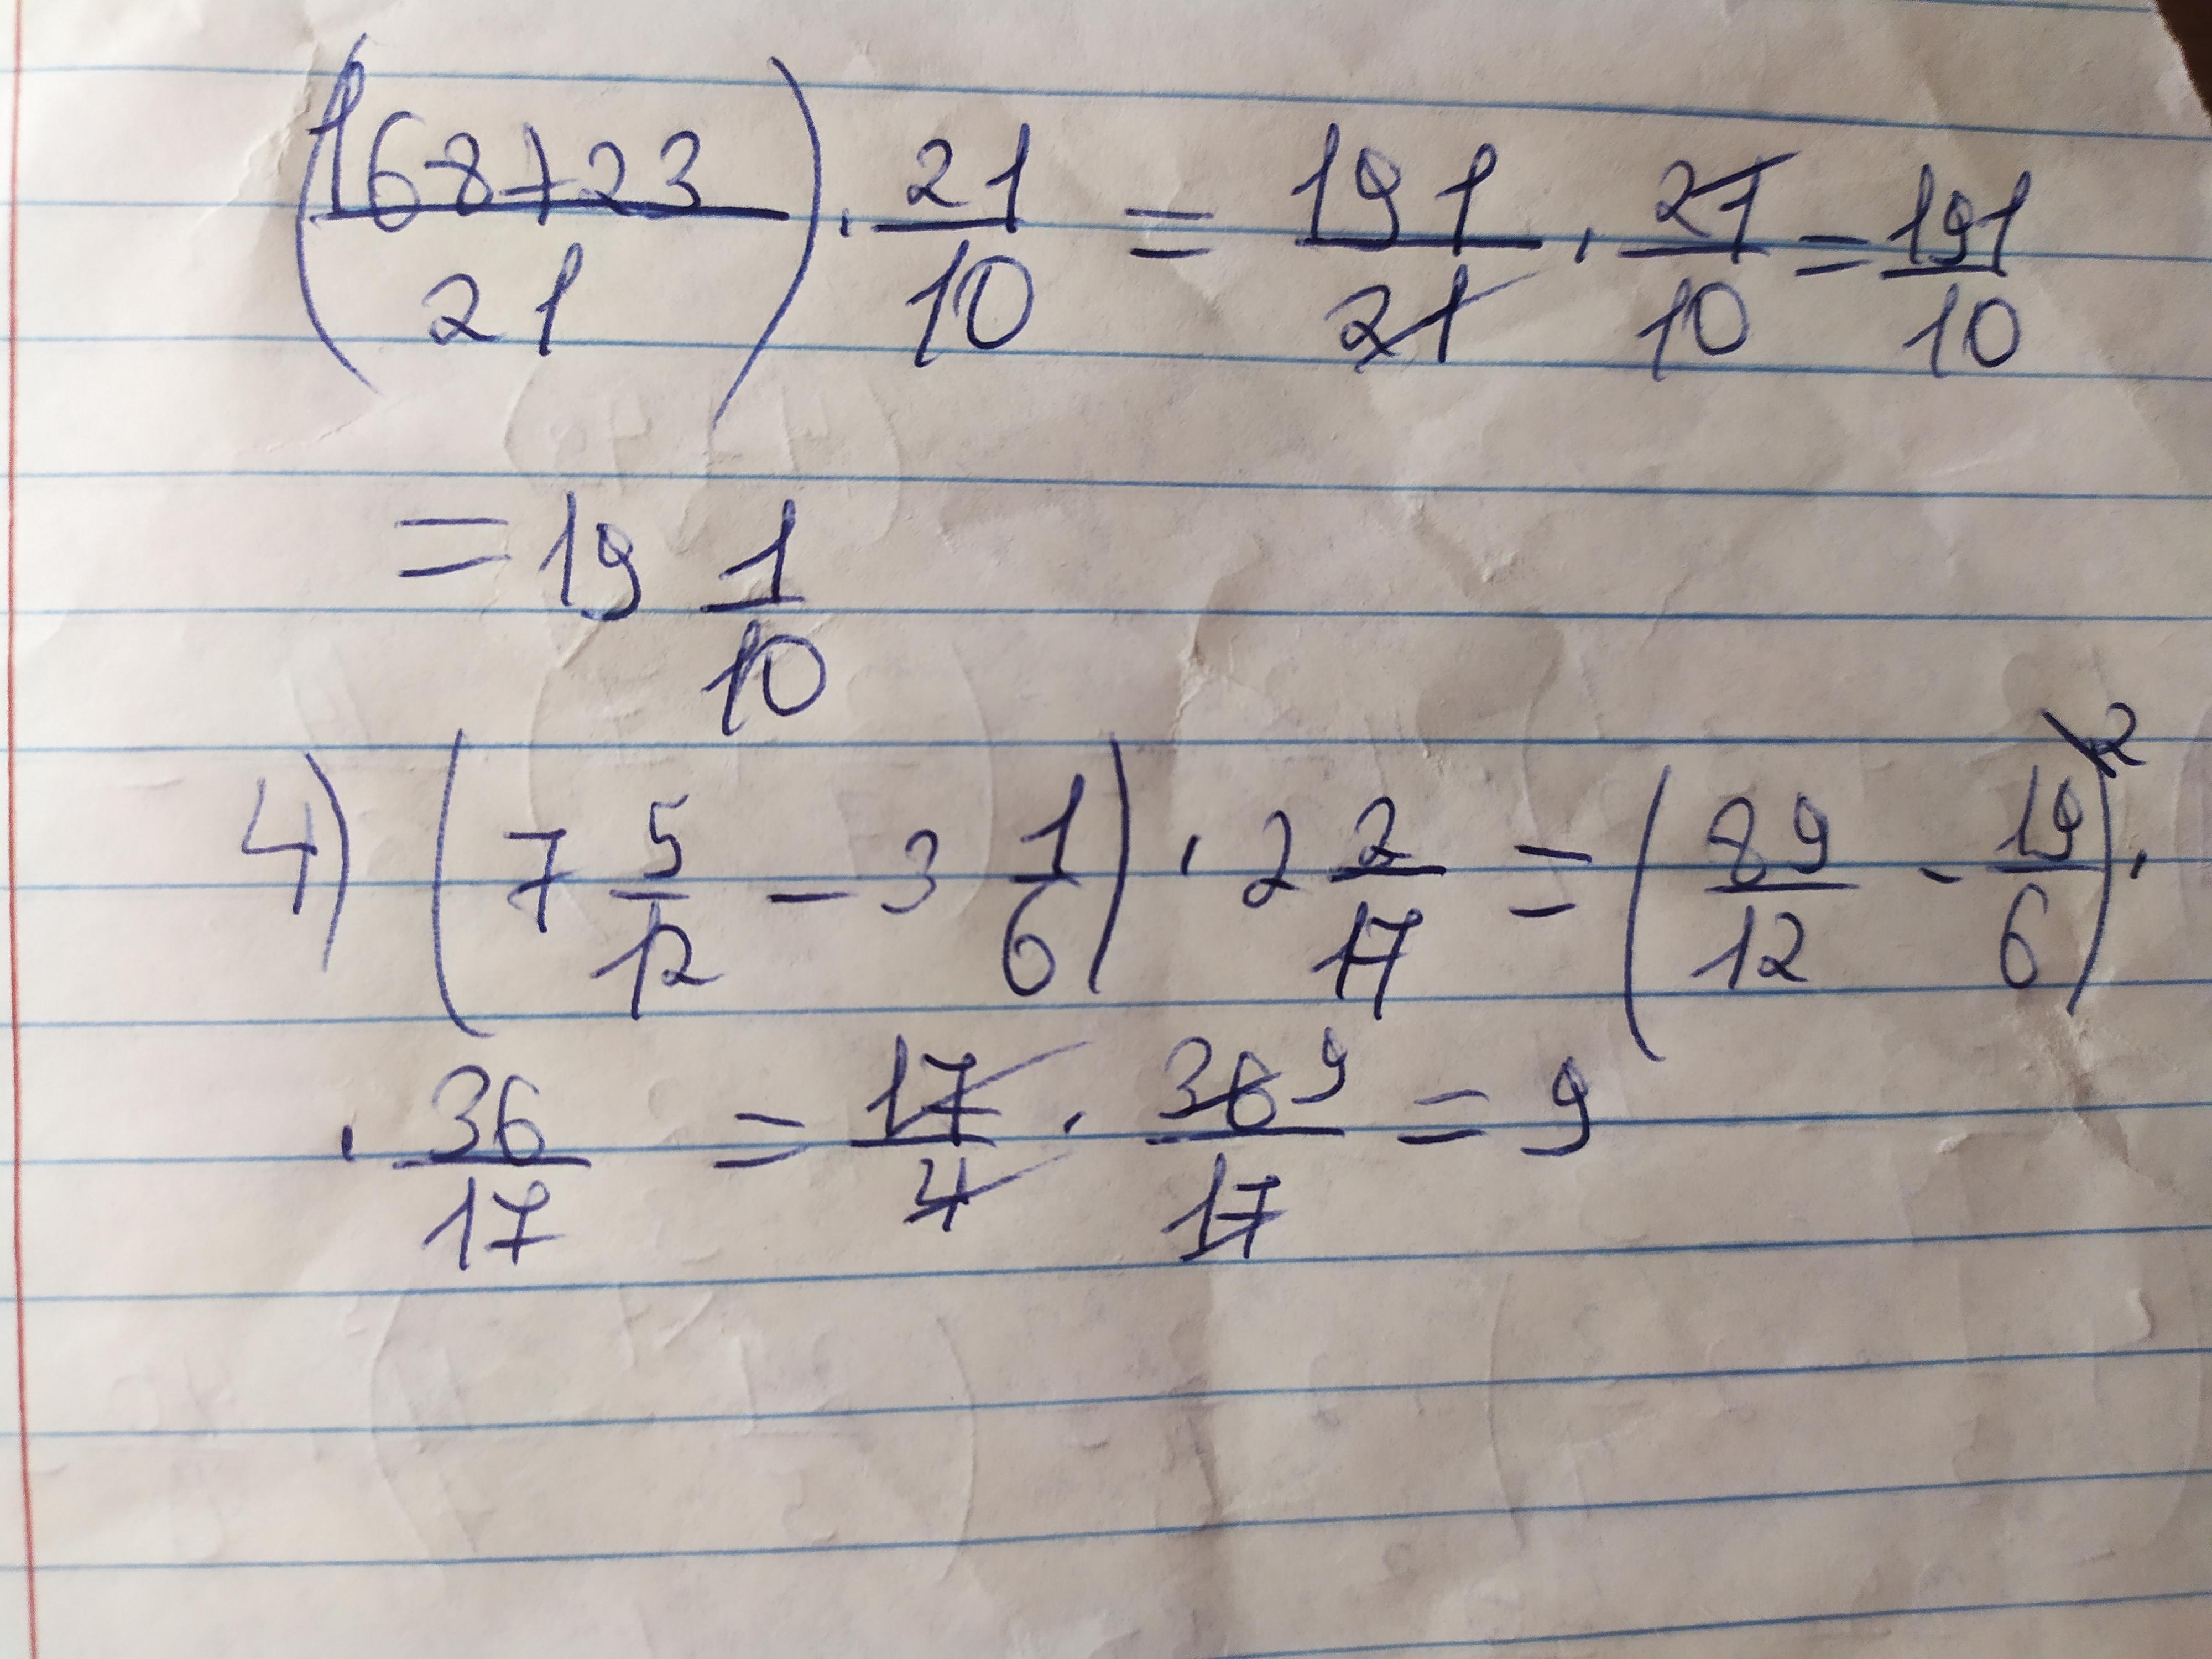 (168+23/21) · 21/10 = 191/21 · 21/10 = 191/10
= 19 1/10
4) (7 5/12 - 3 1/6) · 2 2/17 = (89/12 - 19/6 \2) ·
· 36/17 = 17/4 · 36 9/17 = 9